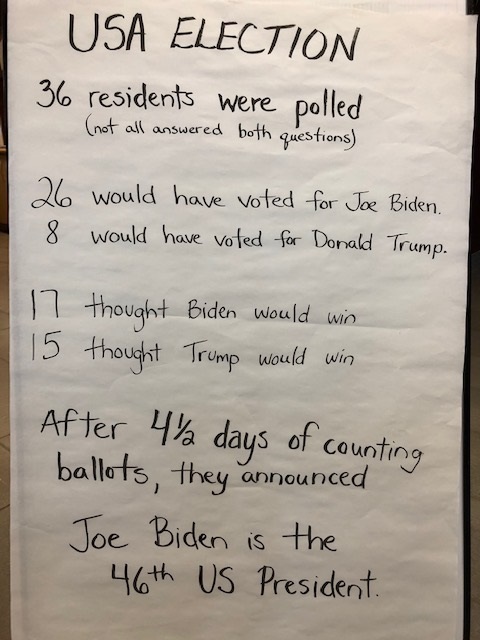 USA ELECTION
36 residents were polled
(not all answered both questions)
26 would have voted for Joe Biden.
8 would have voted for Donald Trump.
17 thought Biden would win
15 thought Trump would win
After 4½ days of counting
ballots, they announced
Joe Biden is the
46th US President.